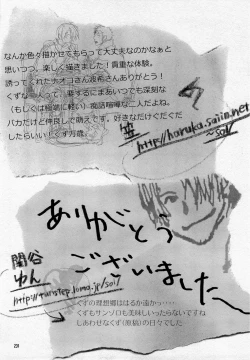 なんか色々描かせてもらって大丈夫なのかなぁと
思いつつ、楽しく描きました！貴重な体験。
誘ってくれたチオコさん波希さんありがとう！
くずなへって、要するにまあいつでも深刻な
(もしくは極端に軽い)痴話喧嘩な二人だよね。
バカだけど仲良しで萌えです。好きなだけぐだぐだ
したらいい！くず万歳。
http://haruka.saiin.net
ありがとう
ございました
関谷
ゆん
くずの理想郷ははるか遠かっ……
くずもサンゾロも美味しいったらないですね
しあわせなくず(原稿)の日々でした